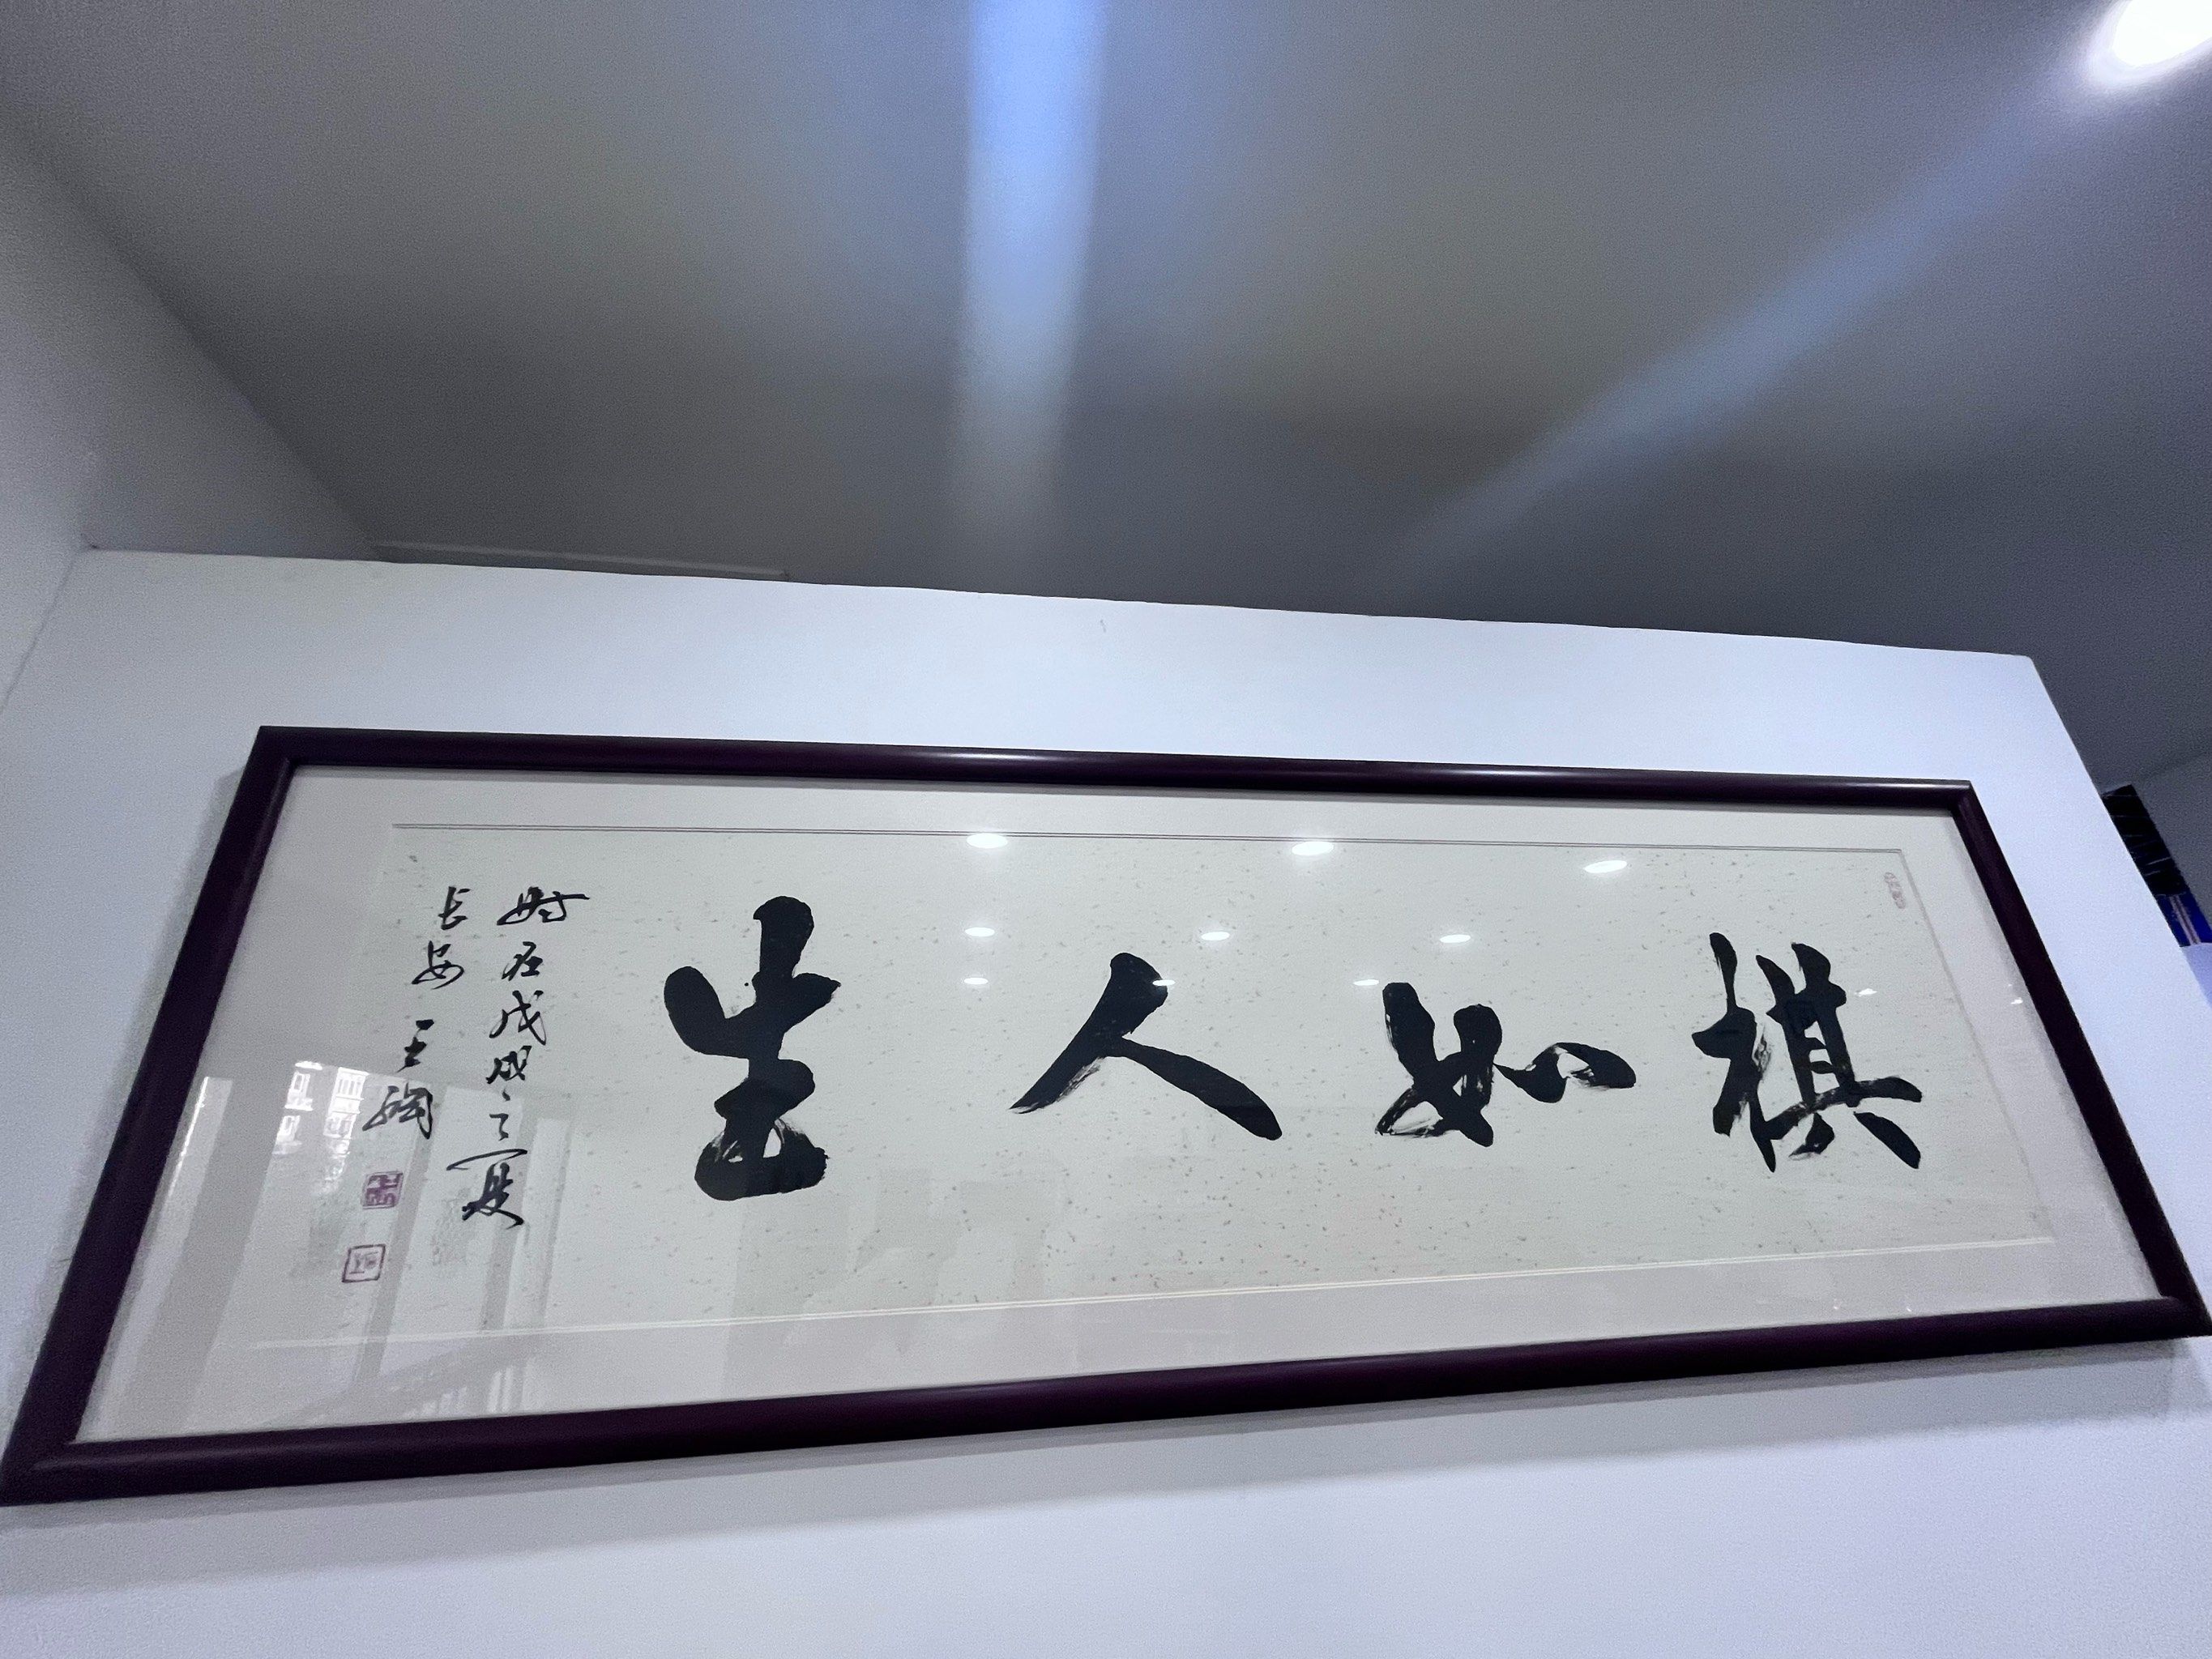 棋如人生
时在戊戌之夏
长安王陶